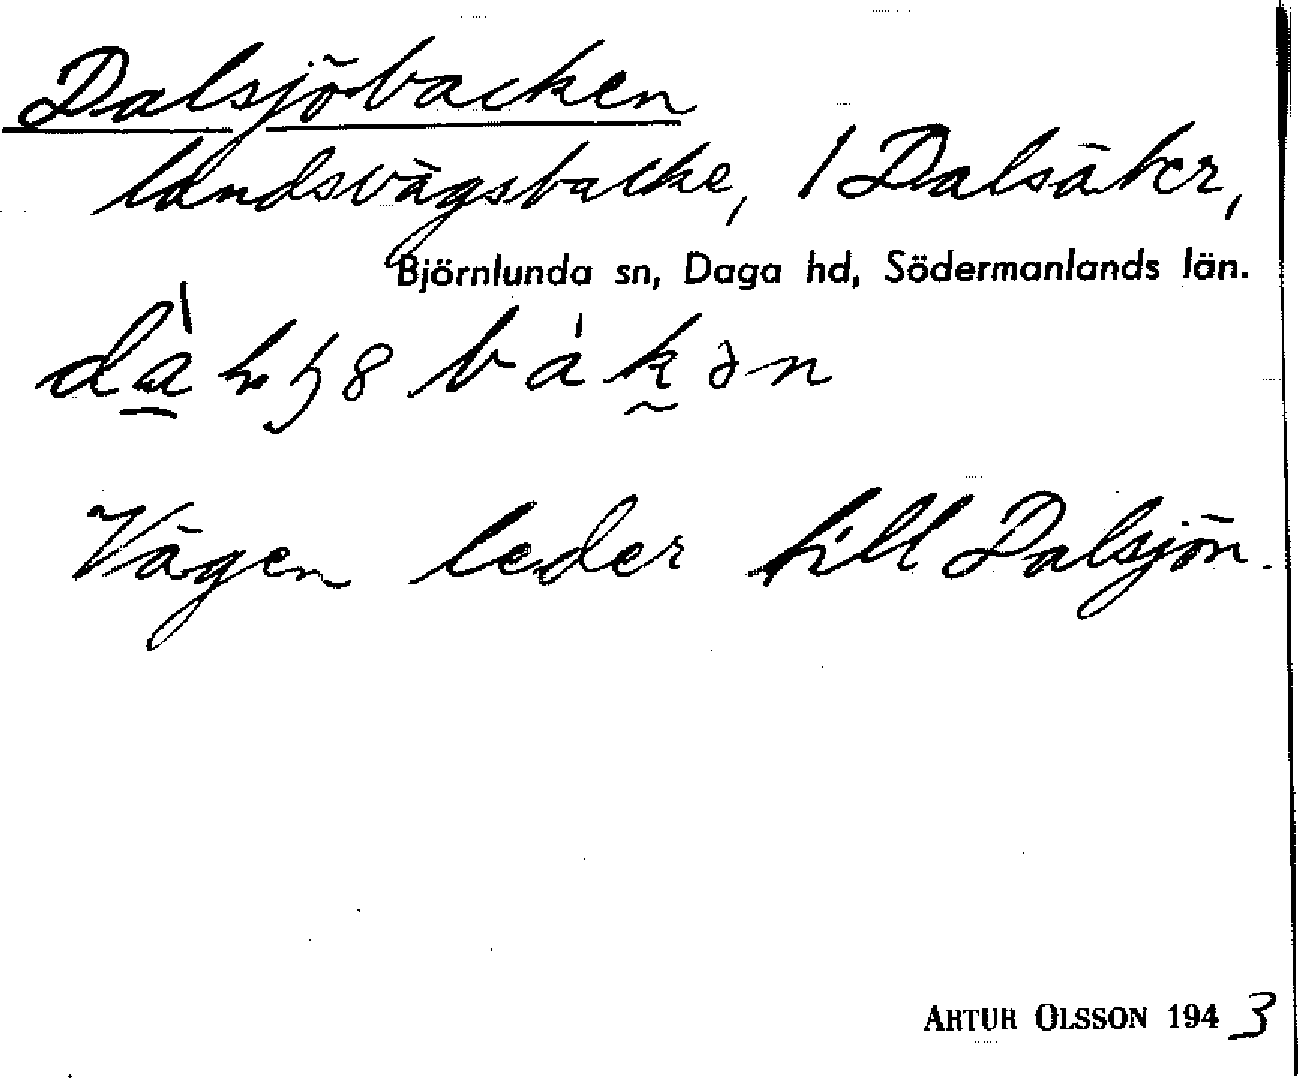 Dalsjöbacken
landsvägsbacke, 1 Dalsäker,
Björnlunda sn, Daga hd, Södermanlands län.
Vägen leder till Dalsjön.
ARTUR OLSSON 1943